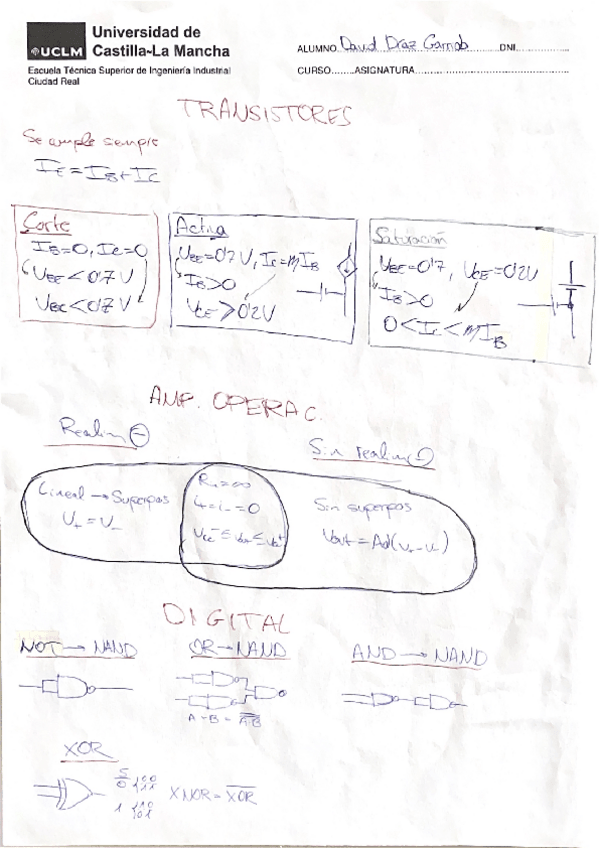 Universidad de
Castilla-La Mancha
UCLM
Escuela Técnica Superior de Ingeniería Industrial
Ciudad Real
ALUMNO David Díaz DNI
CURSO ASIGNATURA
TRANSISTORES
Se cumple siempre
IE = IB + IC
Corte
IB=0, IC=0
VBE<0'7V
VBC<0'7V
Activa
VBE=0'7V, IC=βIB
IB>0
VCE>0'2V
Saturación
VBE=0'7, VCE=0'2V
IB>0
0<IC<βIB
AMP. OPERAC.
Realim ⊖
Sin realim ⊖
Lineal → Superpos
V+ = V-
R = ∞
i+=i-=0
Vcc- ≤ Vout ≤ Vcc+
Sin superpos
Vout = Ad(V+-V-)
DIGITAL
NOT → NAND
OR → NAND
AND → NAND
XOR
XNOR = XOR